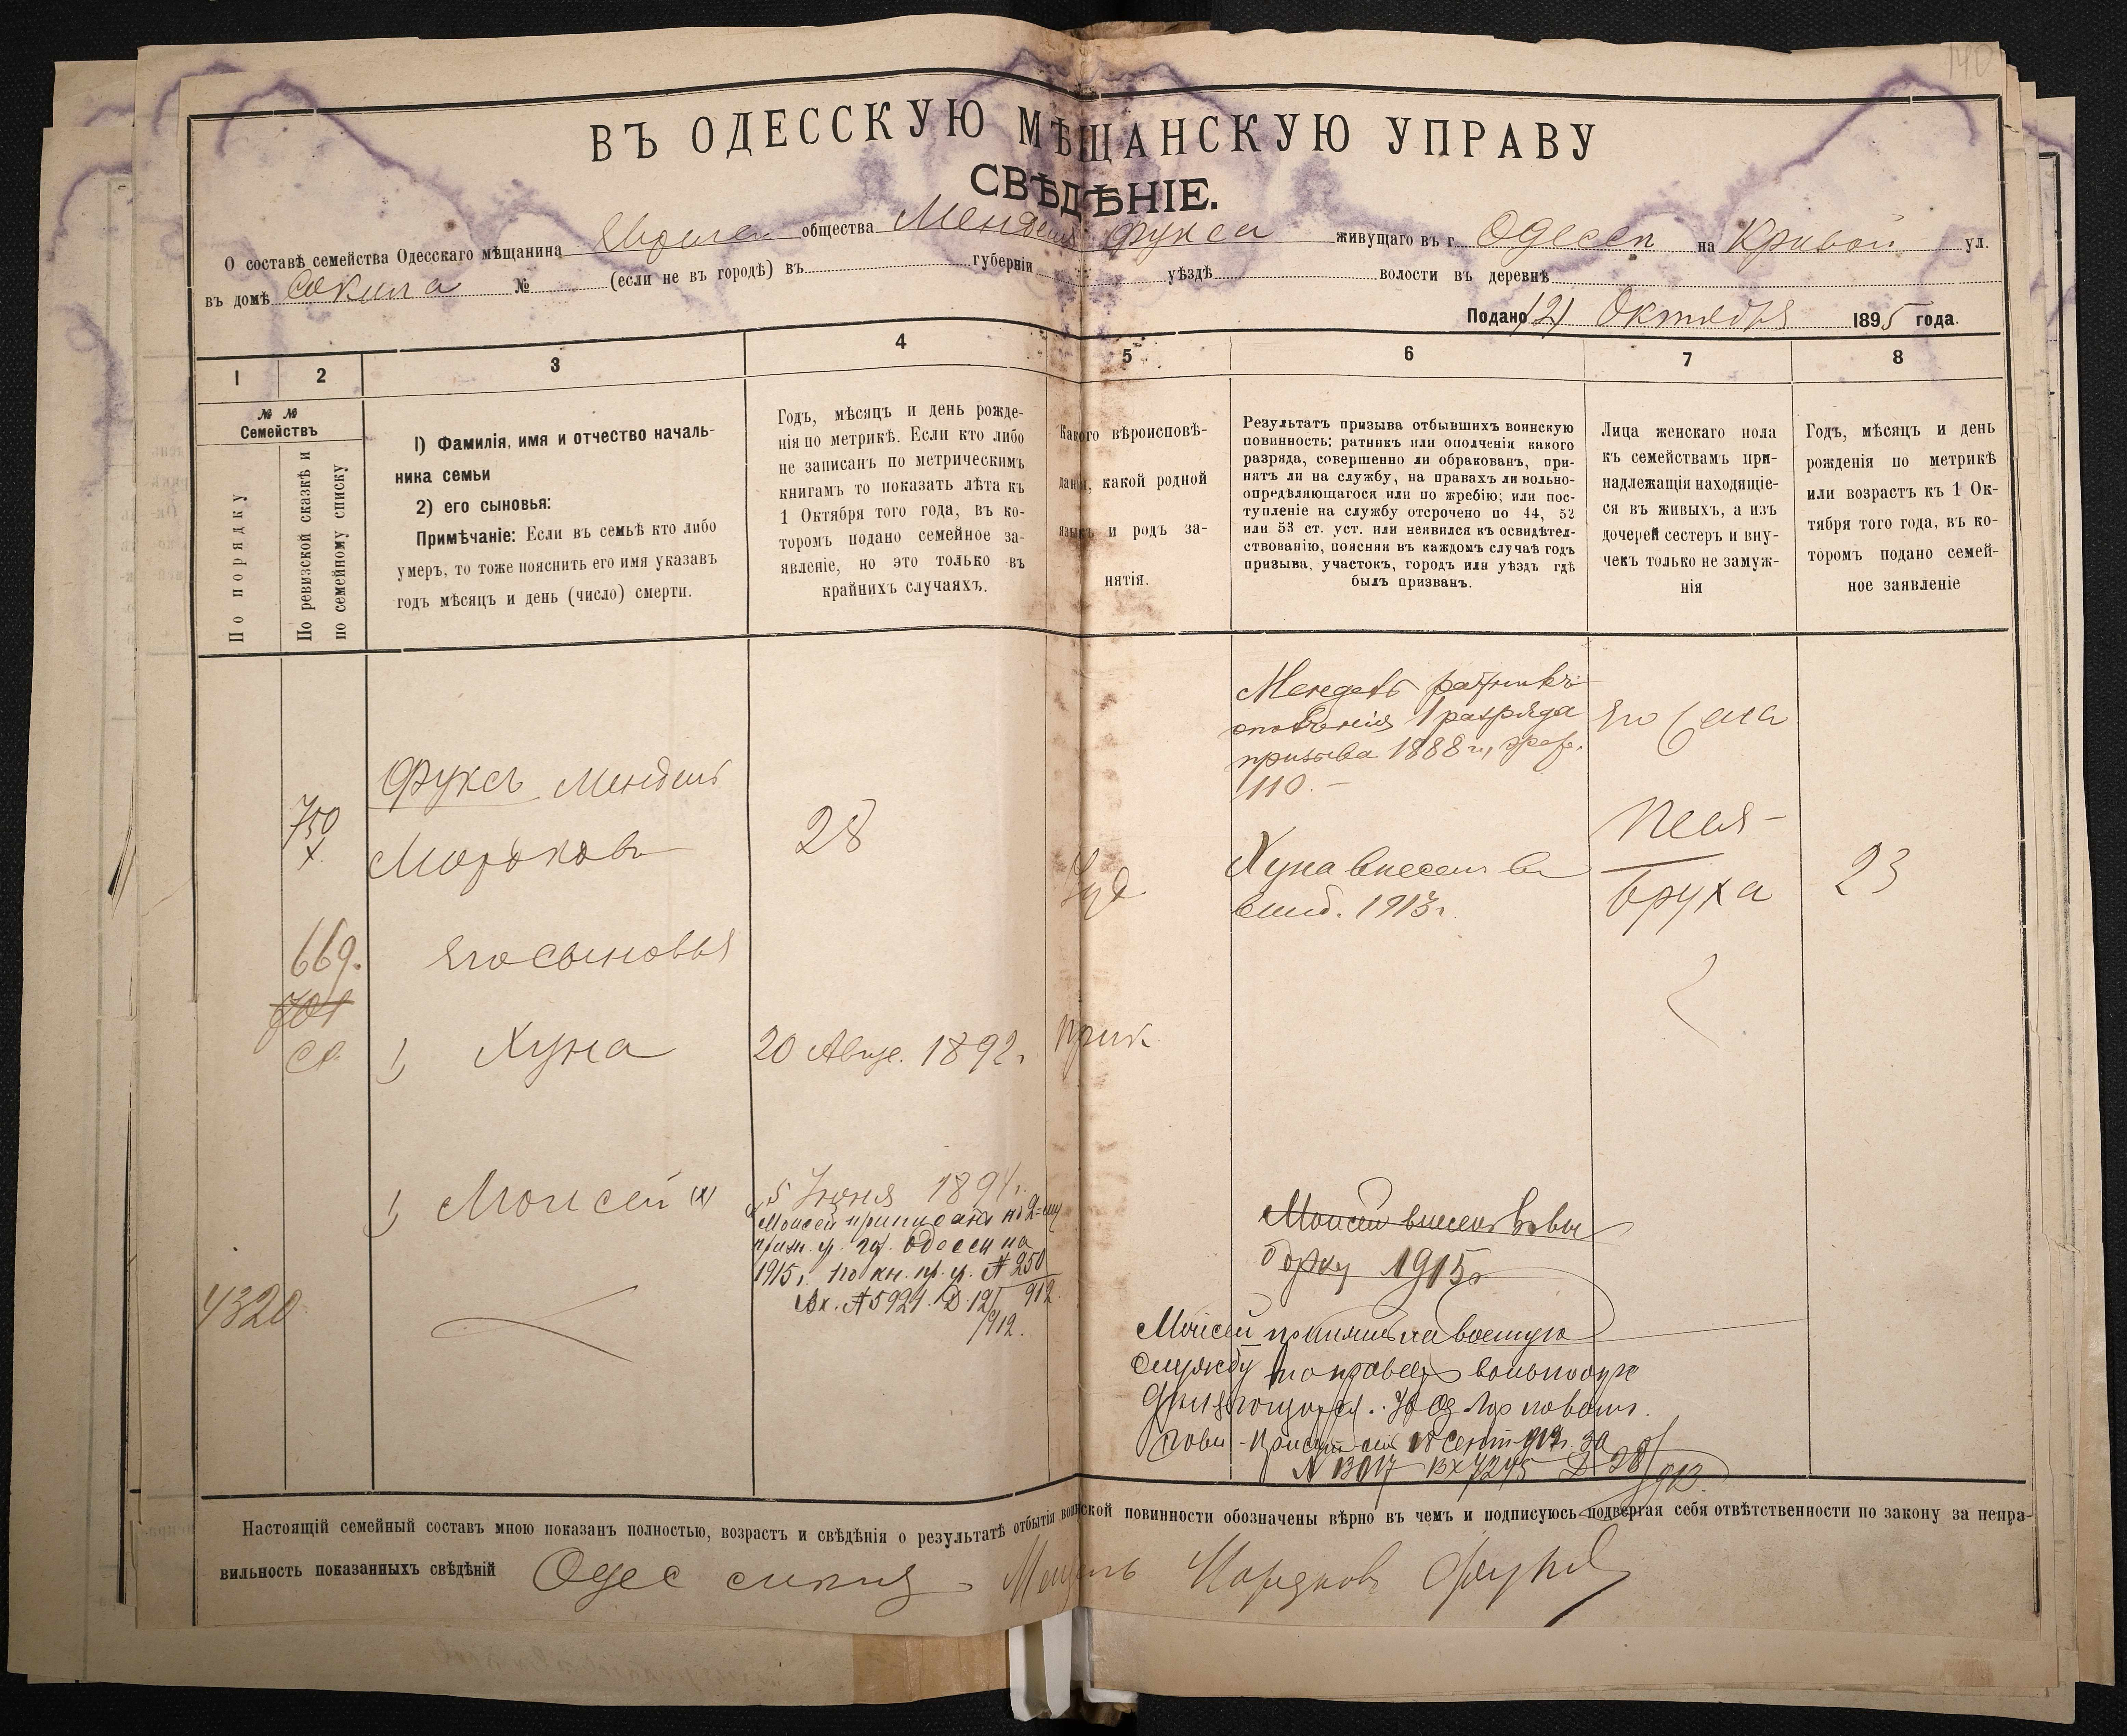 140
ВЪ ОДЕССКУЮ МѢЩАНСКУЮ УПРАВУ
СВѢДѢНІЕ.
О составѣ семейства Одесскаго мѣщанина Еврея общества Мендель Фукса живущаго въ г. Одессѣ на Кривой ул.
въ домѣ Сокила № (если не въ городѣ) въ губерніи уѣздѣ волости въ деревнѣ
Подано 12 Октября 1895 года.
1 2 3 4 5 6 7 8
№ №
Семействъ
По порядку
По ревизской сказкѣ и
по семейному списку
1) Фамилія, имя и отчество началь-
ника семьи
2) его сыновья:
Примѣчаніе: Если въ семьѣ кто либо
умеръ, то тоже пояснить его имя указавъ
годъ мѣсяцъ и день (число) смерти.
Годъ, мѣсяцъ и день рожде-
нія по метрикѣ. Если кто либо
не записанъ по метрическимъ
книгамъ то показать лѣта къ
1 Октября того года, въ ко-
торомъ подано семейное за-
явленіе, но это только въ
крайнихъ случаяхъ.
Какого вѣроисповѣ-
данія, какой родной
языкъ и родъ за-
нятія.
Результатъ призыва отбывшихъ воинскую
повинность: ратникъ или ополченія какого
разряда, совершенно ли обракованъ, при-
нятъ ли на службу, на правахъ ли вольно-
опредѣляющагося или по жребію; или пос-
тупленіе на службу отсрочено по 44, 52
или 53 ст. уст. или неявился къ освидѣтел-
ствованію, поясняя въ каждомъ случаѣ годъ
призыва, участокъ, городъ или уѣздъ гдѣ
былъ призванъ.
Лица женскаго пола
къ семействамъ при-
надлежащія находящіе-
ся въ живыхъ, а изъ
дочерей сестеръ и вну-
чекъ только не замуж-
нія
Годъ, мѣсяцъ и день
рожденія по метрикѣ
или возрастъ къ 1 Ок-
тября того года, въ ко-
торомъ подано семей-
ное заявленіе
Мендель ратникъ
ополченія 1 разряда
призыва 1888 г.,
110.-
Его жена
Фуксъ Мендель
750
х.
Мордковъ
28
Іуд.
Хуна внесенъ въ
1913 г.
Песя-
Бруха
23
669.
Его сыновья
701
1) Хуна
20 Авгус. 1892 г.
Прик
1) Моисей (х)
5 Іюня 1894 г.
Моисей приписанъ ко 2-му
приз. у. гор. Одессы на
1915 г. по кн. пр. у. № 250
Вх. № 5921. Д. 12/912 912
4320
Моисей внесенъ въ вы
борку 1915 г.
Моисей принятъ на военную
службу на правахъ вольноопре
дѣляющагося.
№ 13017 Вх 7245 Д 28/913
Настоящій семейный составъ мною показанъ полностью, возрастъ и свѣдѣнія о результатѣ отбытія воинской повинности обозначены вѣрно въ чемъ и подписуюсь подвергая себя отвѣтственности по закону за непра-
вильность показанныхъ свѣдѣній Одес Мендель Мордковъ Фуксъ